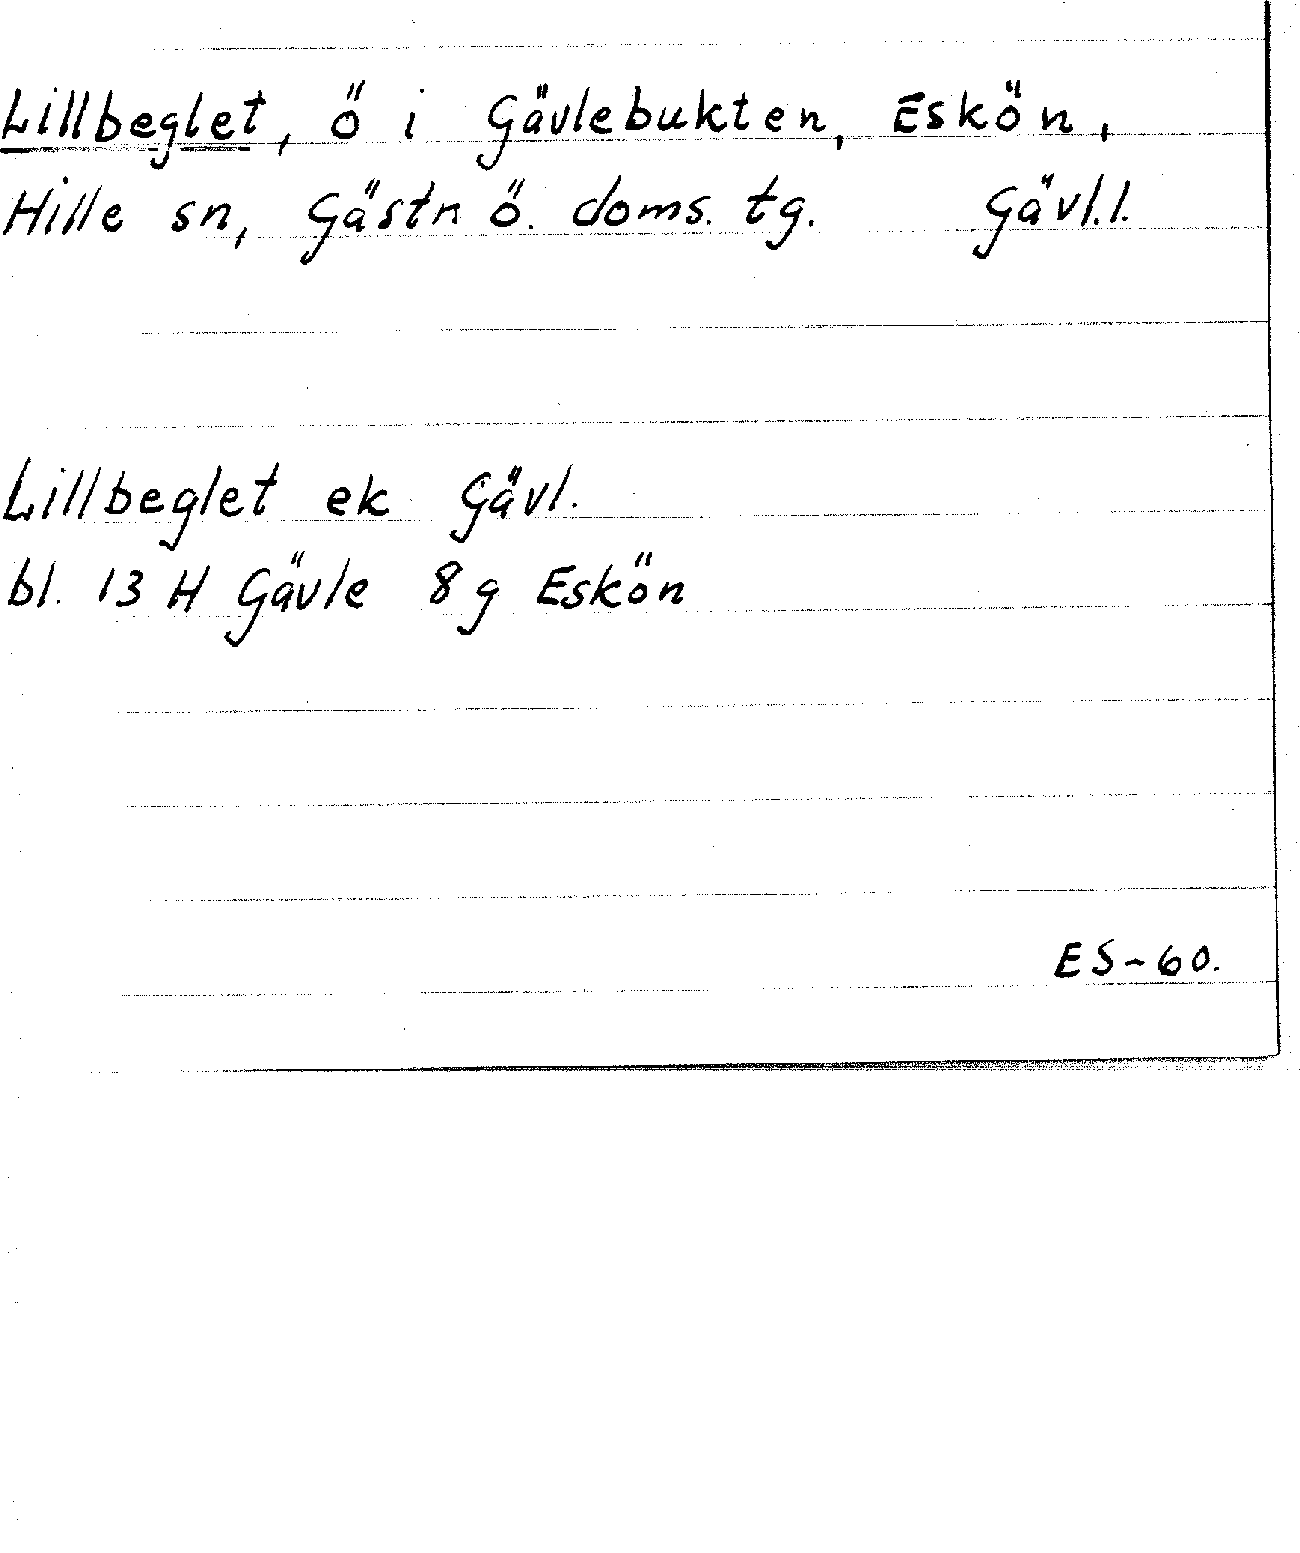 Lillbeglet, ö i Gävlebukten, Eskön,
Hille sn, Gästn ö. doms. tg. Gävl.l.
Lillbeglet ek Gävl.
bl. 13 H Gävle 8 g Eskön
ES-60.